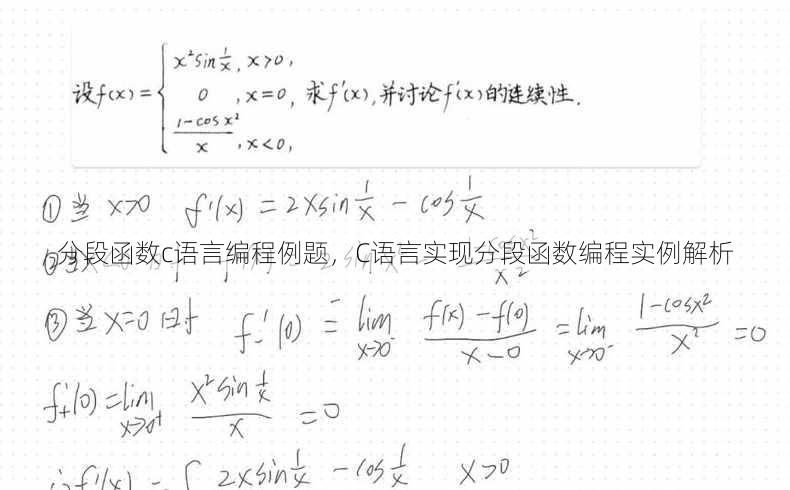 设f(x)={ x²sin 1/x, x>0,
0, x=0,
(1-cos x²)/x, x<0,
求f'(x),并讨论f'(x)的连续性.
①当 x>0 f'(x) = 2xsin 1/x - cos 1/x
分段函数c语言编程例题，C语言实现分段函数编程实例解析
③当x=0时 f-'(0) = lim x→0- (f(x)-f(0))/(x-0) = lim x→0- (1-cosx²)/x² =0
f+'(0)=lim x→0+ (x²sin 1/x)/x =0
f'(x) = { 2xsin 1/x - cos 1/x x>0